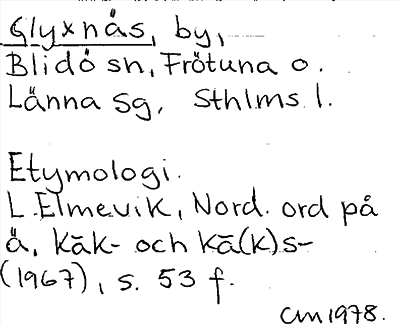 Glyxnäs, by,
Blidö sn, Frötuna o.
Länna sg, Sthlms l.
Etymologi.
L. Elmevik, Nord. ord på
ä, kāk- och kā(k)s-
(1967), s. 53 f.
CM 1978.